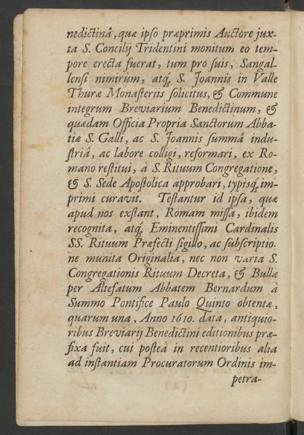 nedictinâ, quæ ipso præprimis Auctore jux-
ta S. Concilij Tridentini monitum eo tem-
pore erecta fuerat, tum pro suis, Sangal-
lensi nimirum, atq; S. Joannis in Valle
Thuræ Monasteriis solicitus, & Commune
integrum Breviarium Benedictinum, &
quædam Officia Propria Sanctorum Abba-
tiæ S. Galli, ac S. Joannis summâ indu-
striâ, ac labore colligi, reformari, ex Ro-
mano restitui, à S. Rituum Congregatione,
& S. Sede Apostolica approbari, typisq; im-
primi curavit. Testantur id ipsa, quæ
apud nos exstant, Romam missa, ibidem
recognita, atq; Eminentissimi Cardinalis
SS. Rituum Præfecti sigillo, ac subscriptio-
ne munita Originalia, nec non varia S.
Congregationis Rituum Decreta, & Bullæ
per Altefatum Abbatem Bernardum à
Summo Pontifice Paulo Quinto obtentæ,
quarum una, Anno 1610. data, antiquio-
ribus Breviarij Benedictini editionibus præ-
fixa fuit, cui posteà in recentioribus alia
ad instantiam Procuratorum Ordinis im-
petra-